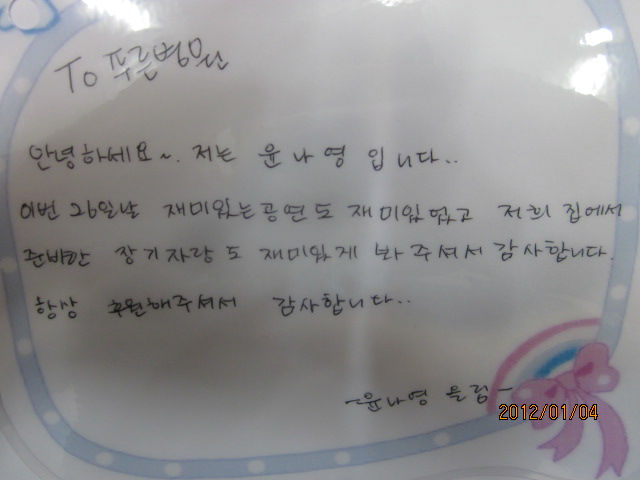 To 푸른병원
안녕하세요~. 저는 윤나영 입니다..
이번 26일날 재미있는공연도 재미있었고 저희 집에서
준비한 장기자랑도 재미있게 봐주셔서 감사합니다.
항상 후원해주셔서 감사합니다..
-윤나영 올림-
2012/01/04